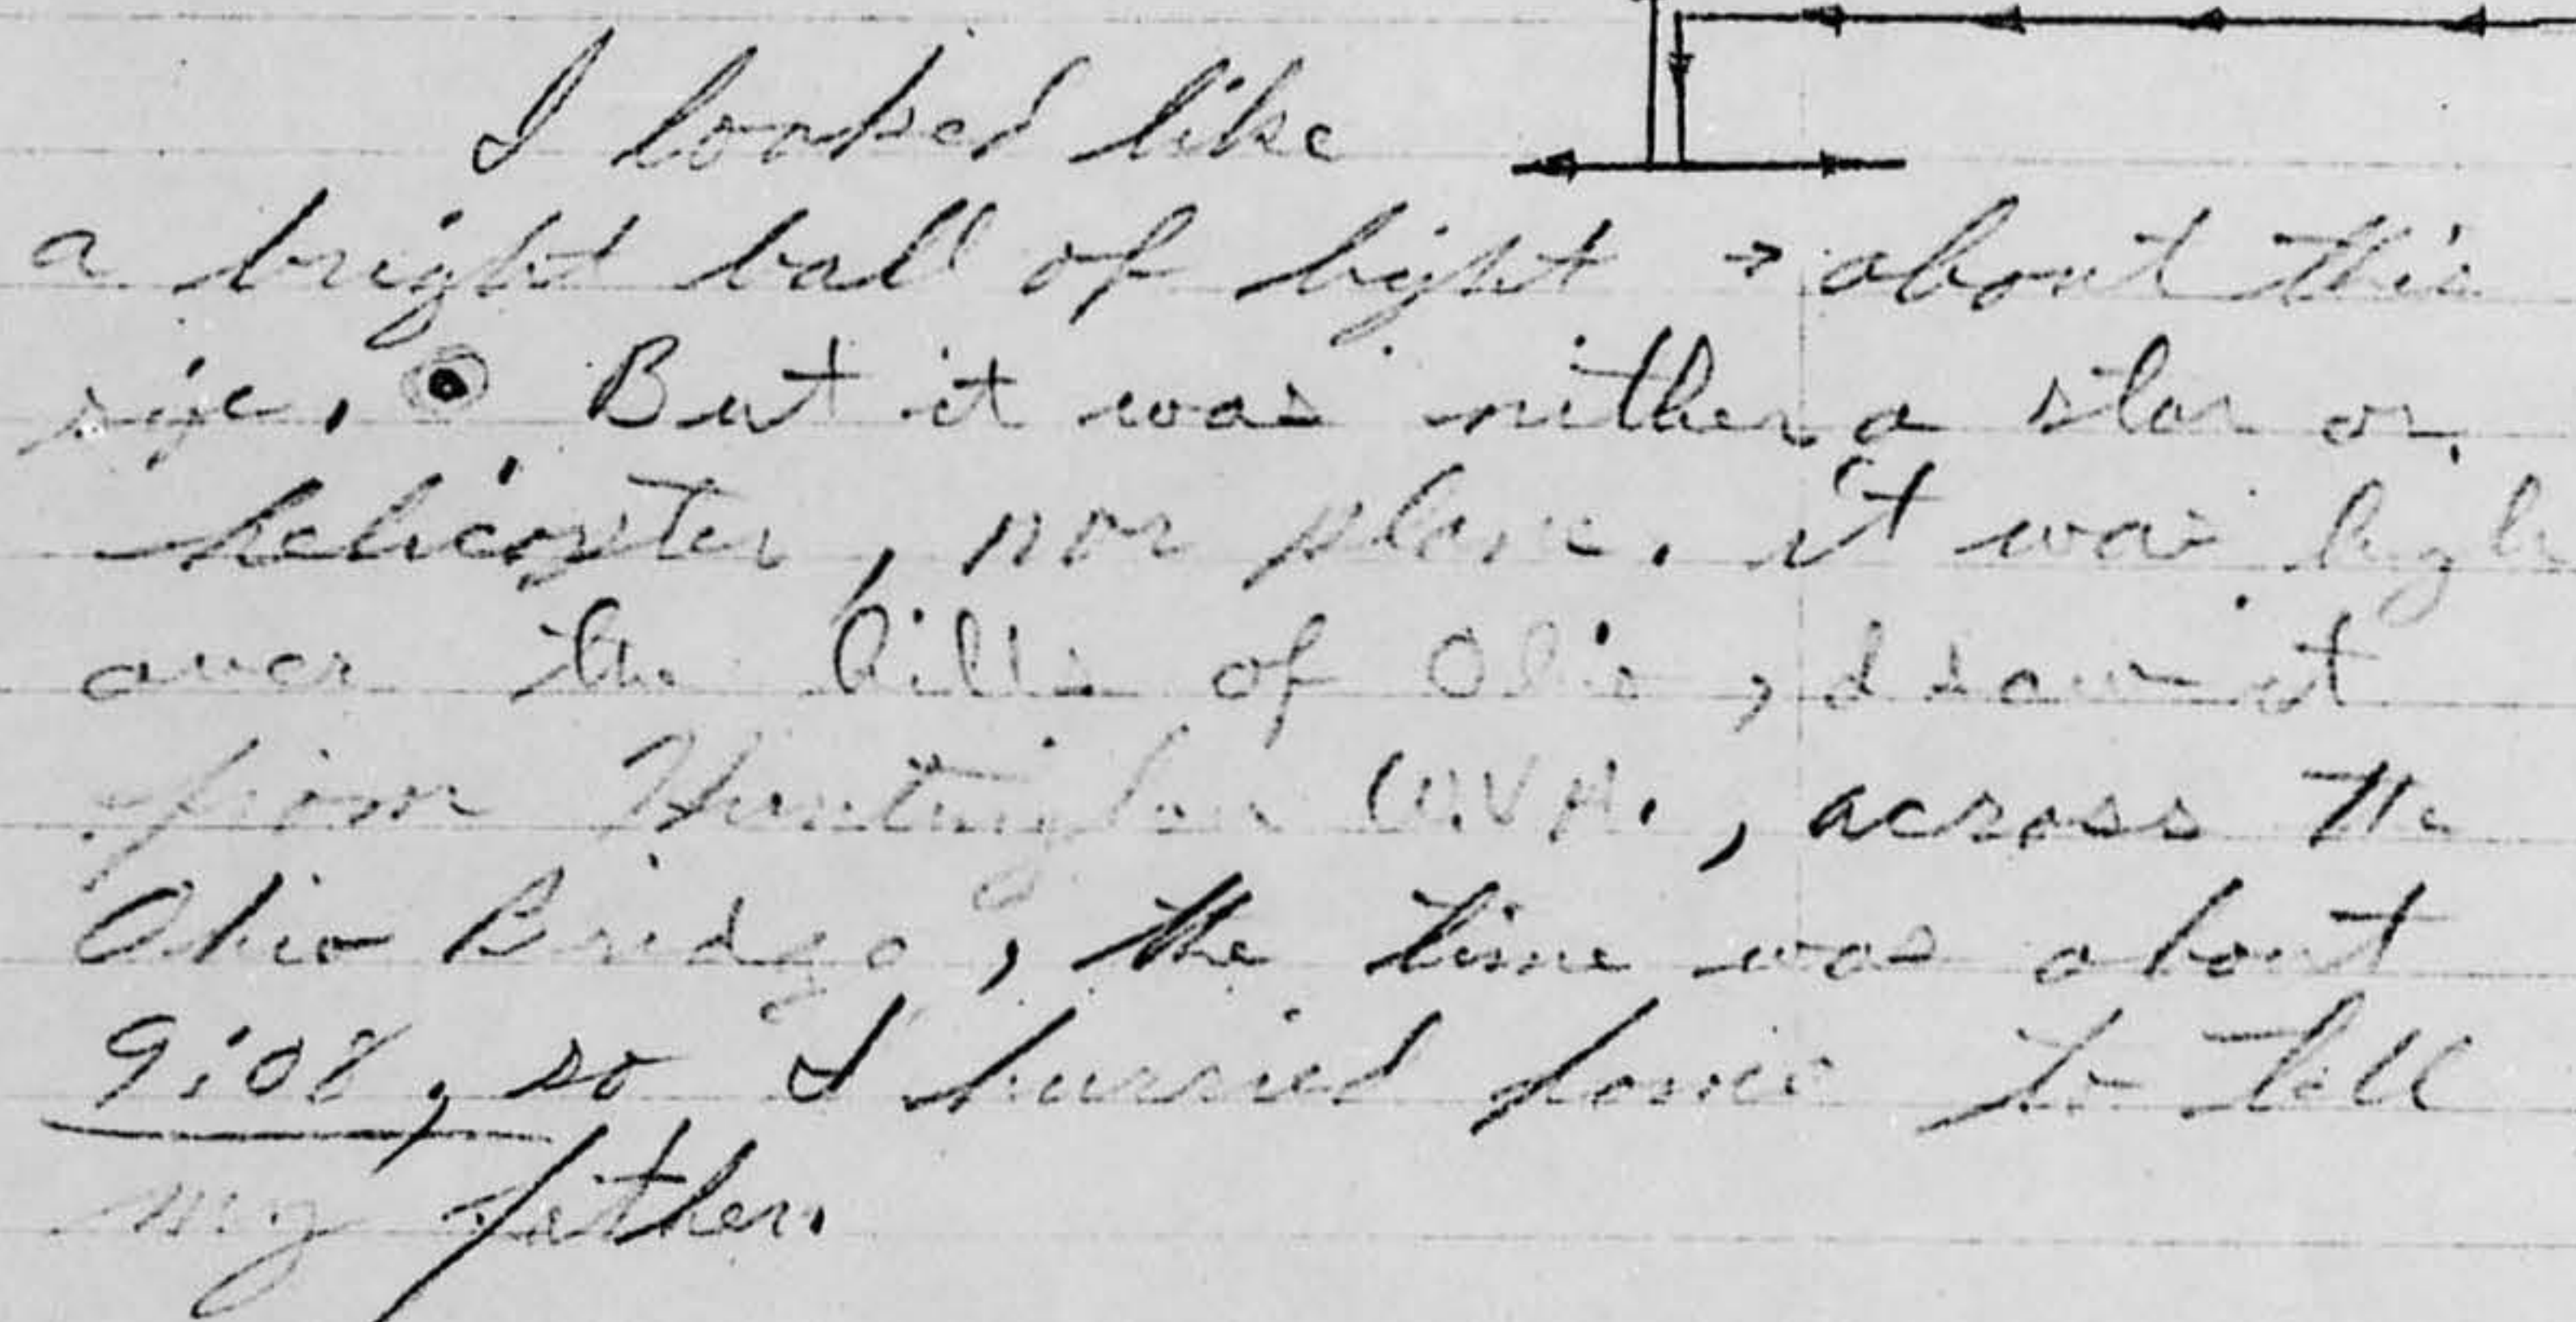 I looked like
a bright ball of light → about this
size. But it was nither a star or
helicopter, nor plane. it was high
over the hills of Ohio, I saw it
from Huntington W.VA., across the
Ohio Bridge, the time was about
9:08, so I hurried home to tell
my father.